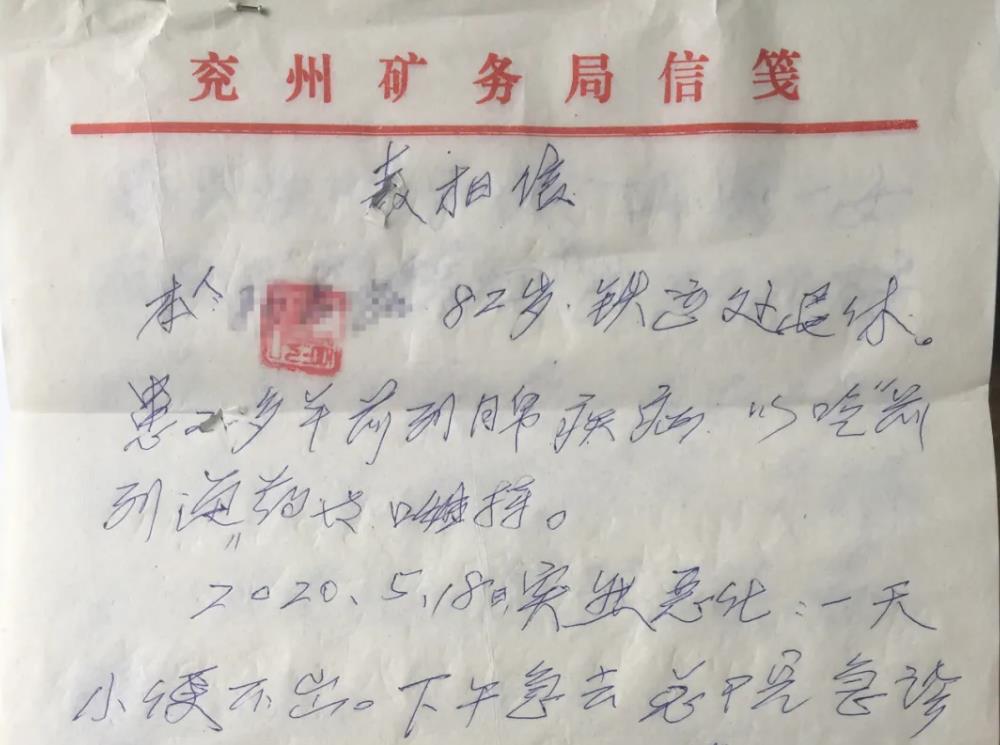 兖州矿务局信笺
表扬信
本人 82岁.铁运处退休。
患20多年前列腺疾症.以吃"前
列通"药 维持。
2020、5、18日突然恶化：一天
小便不出。下午急去总院急诊